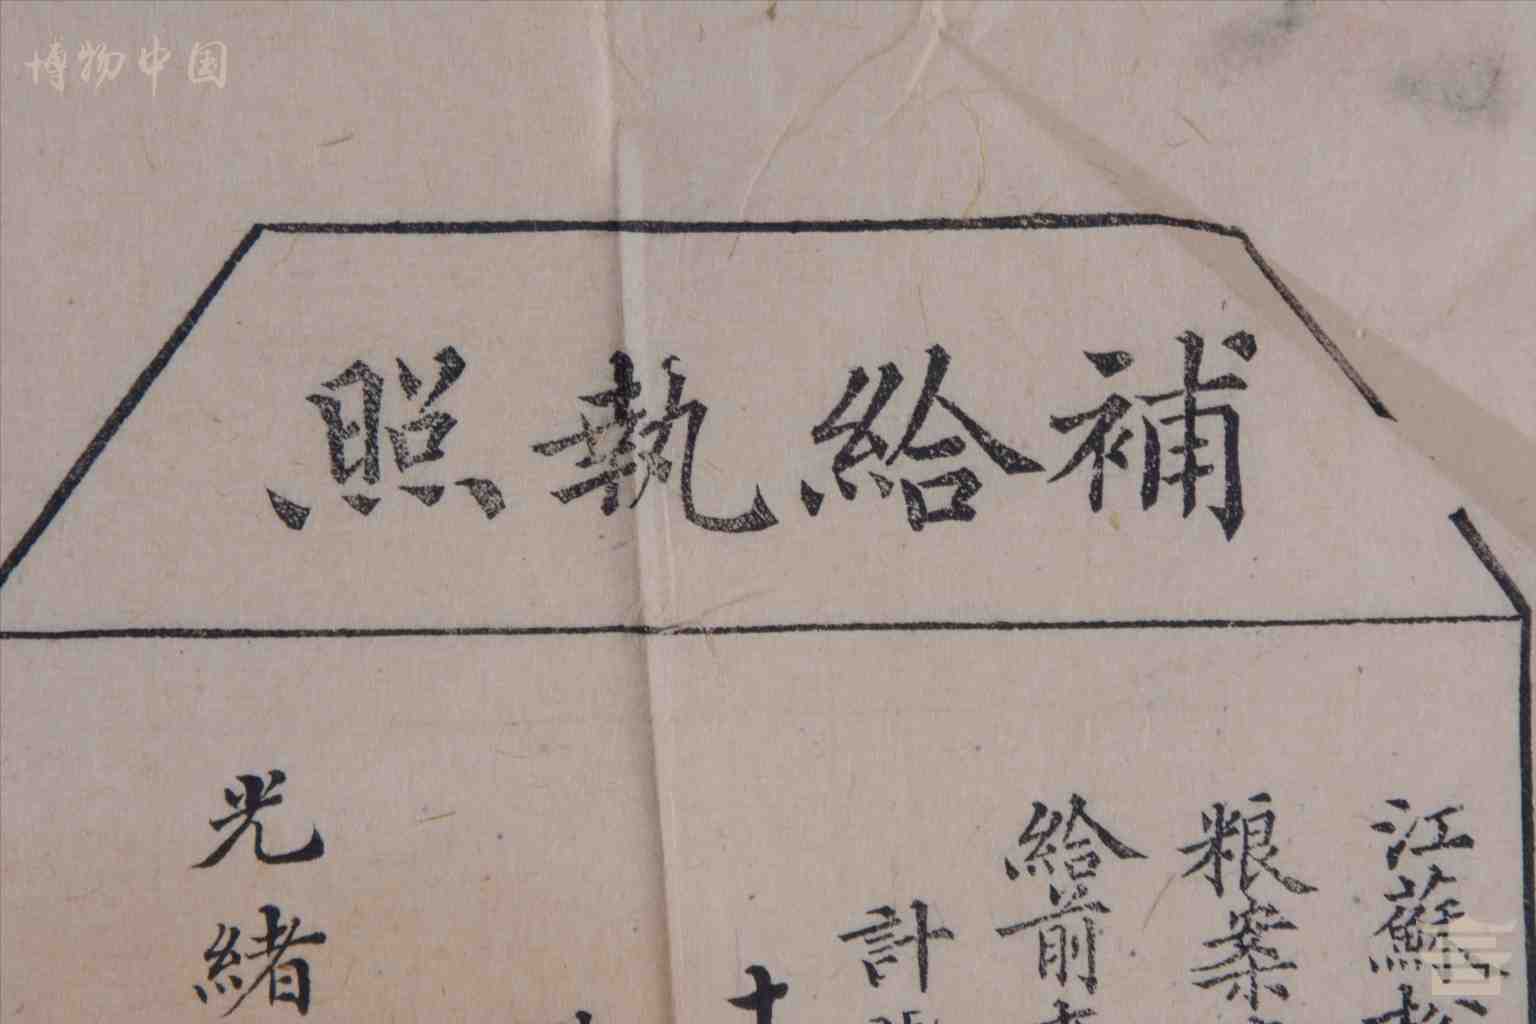 博物中国
補給執照
江蘇
粮案
給前
計
十
光緒